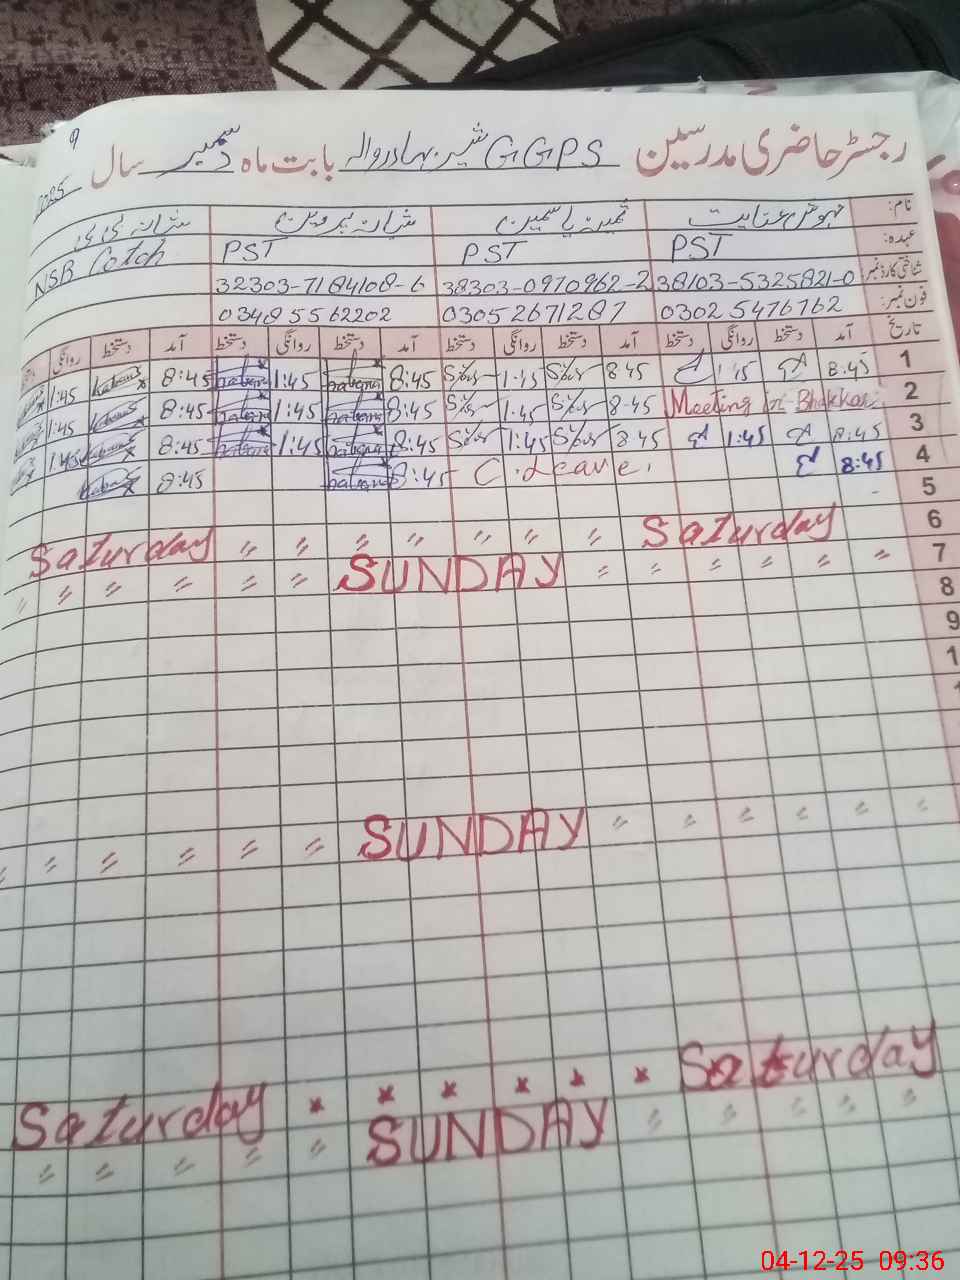 9
رجسٹر حاضری مدرسین GGPS شیر بہادر والہ بابت ماہ دسمبر سال 2025
نام: مہوش عنایت ثمینہ یاسمین شبانہ پروین شبانہ بی بی
عہدہ: PST PST PST NSB Cotch
شناختی کارڈ نمبر: 38103-5325821-0 38303-0970962-2 32303-7184108-6
فون نمبر: 0302 5476762 03052671287 03485562202
تاریخ آمد دستخط روانگی دستخط آمد دستخط روانگی دستخط آمد دستخط روانگی دستخط آمد دستخط روانگی
1 8:45 1:15 8:45 1:15 8:45 1:45 8:45 1:45
2 Meeting in Bhakkar 8:45 1:45 8:45 1:45 8:45 1:45
3 8:45 1:45 8:45 1:45 8:45 1:45 8:45 1:45
4 8:45 C.Leave. 8:45 8:45
5
6 Saturday 〃 〃 〃 〃 〃 〃 〃 Saturday
7 〃 〃 〃 〃 〃 SUNDAY 〃 〃 〃 〃 〃
8
9
1
SUNDAY
Saturday × × × × × × Saturday
SUNDAY
04-12-25 09:36